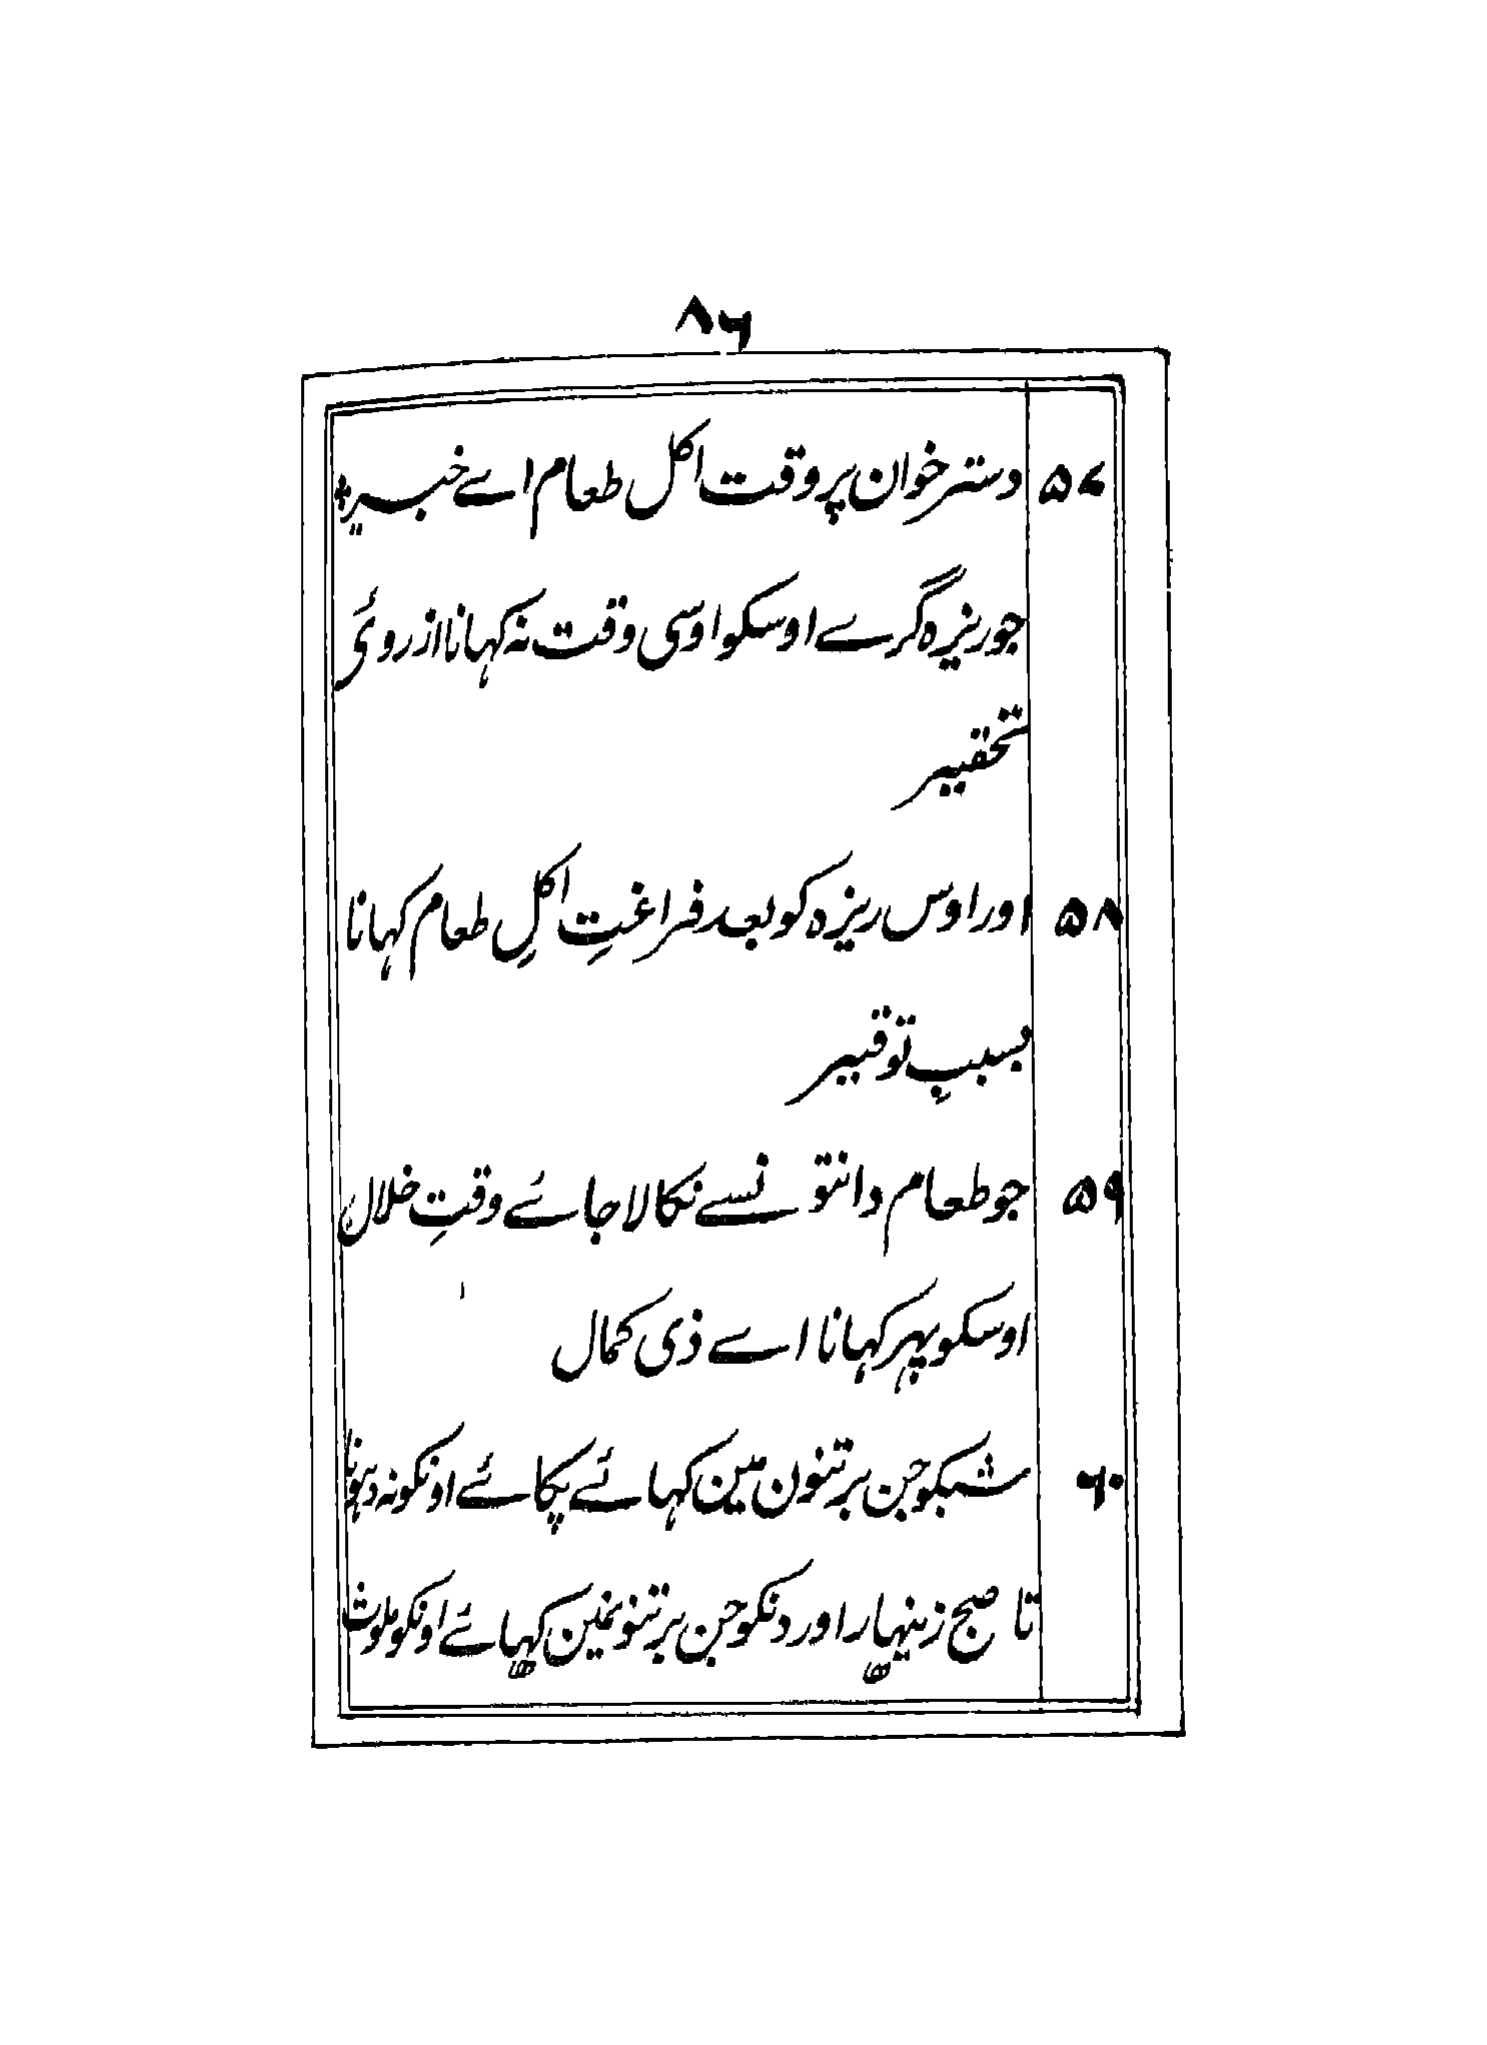 ۸۶
۵۷ دستر خوان پر وقت اکل طعام اے خبیر
جو ریزہ گرے اوسکو اوسی وقت نہ کہانا از روئی
تحقیر
۵۸ اور اوس ریزہ کو بعد فراغتِ اکلِ طعام کہانا
بسببِ توقیر
۵۹ جو طعام دانتو نسے نکالا جائے وقتِ خلال
اوسکو پہر کہانا اے ذی کمال
۶۰ شبکو جن برتنون مین کہائے پکائے اونکو نہ دہونا
تا صبح زینہار اور دنکو جن برتنونمین کہائے اونکو ملوث